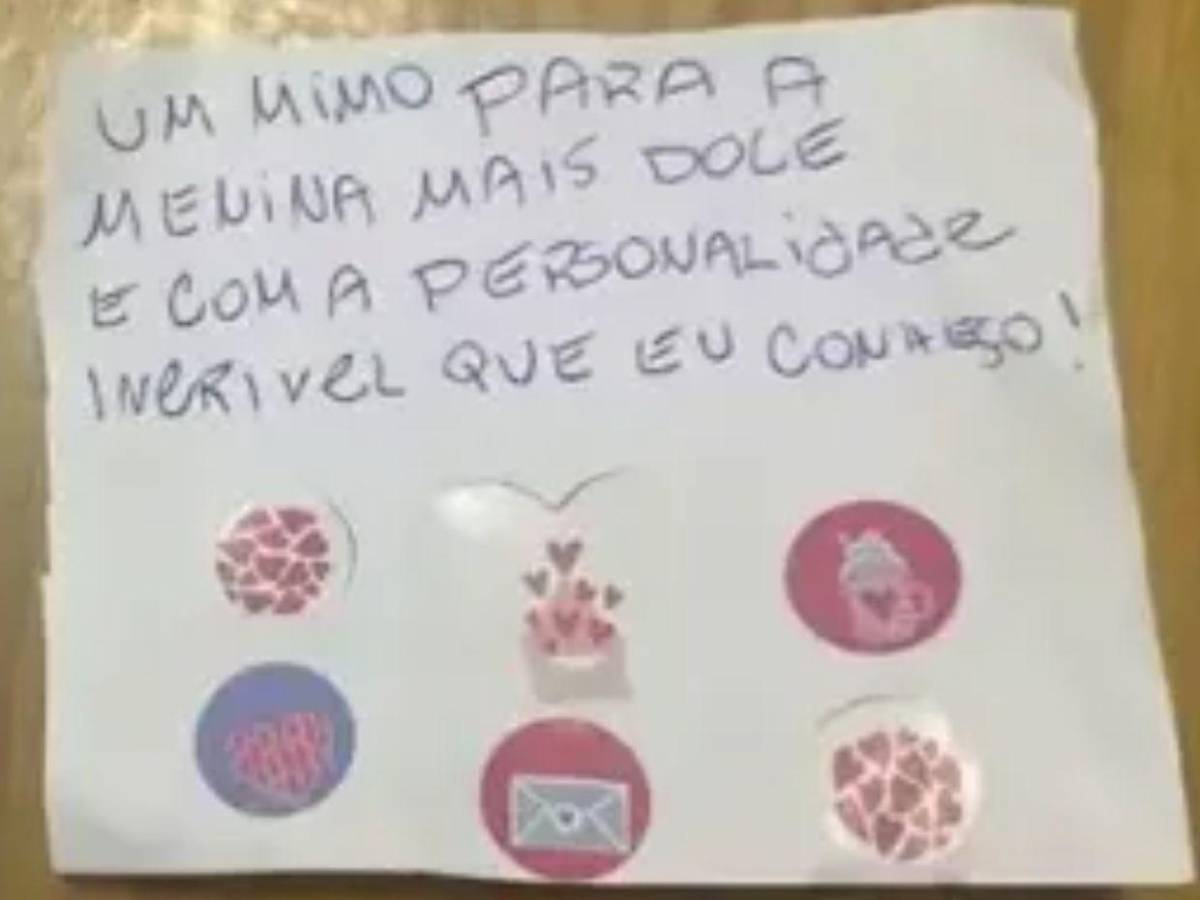 UM MIMO PARA A
MENINA MAIS DOCE
E COM A PERSONALidAde
INCRIVEL QUE EU CONHEÇO!